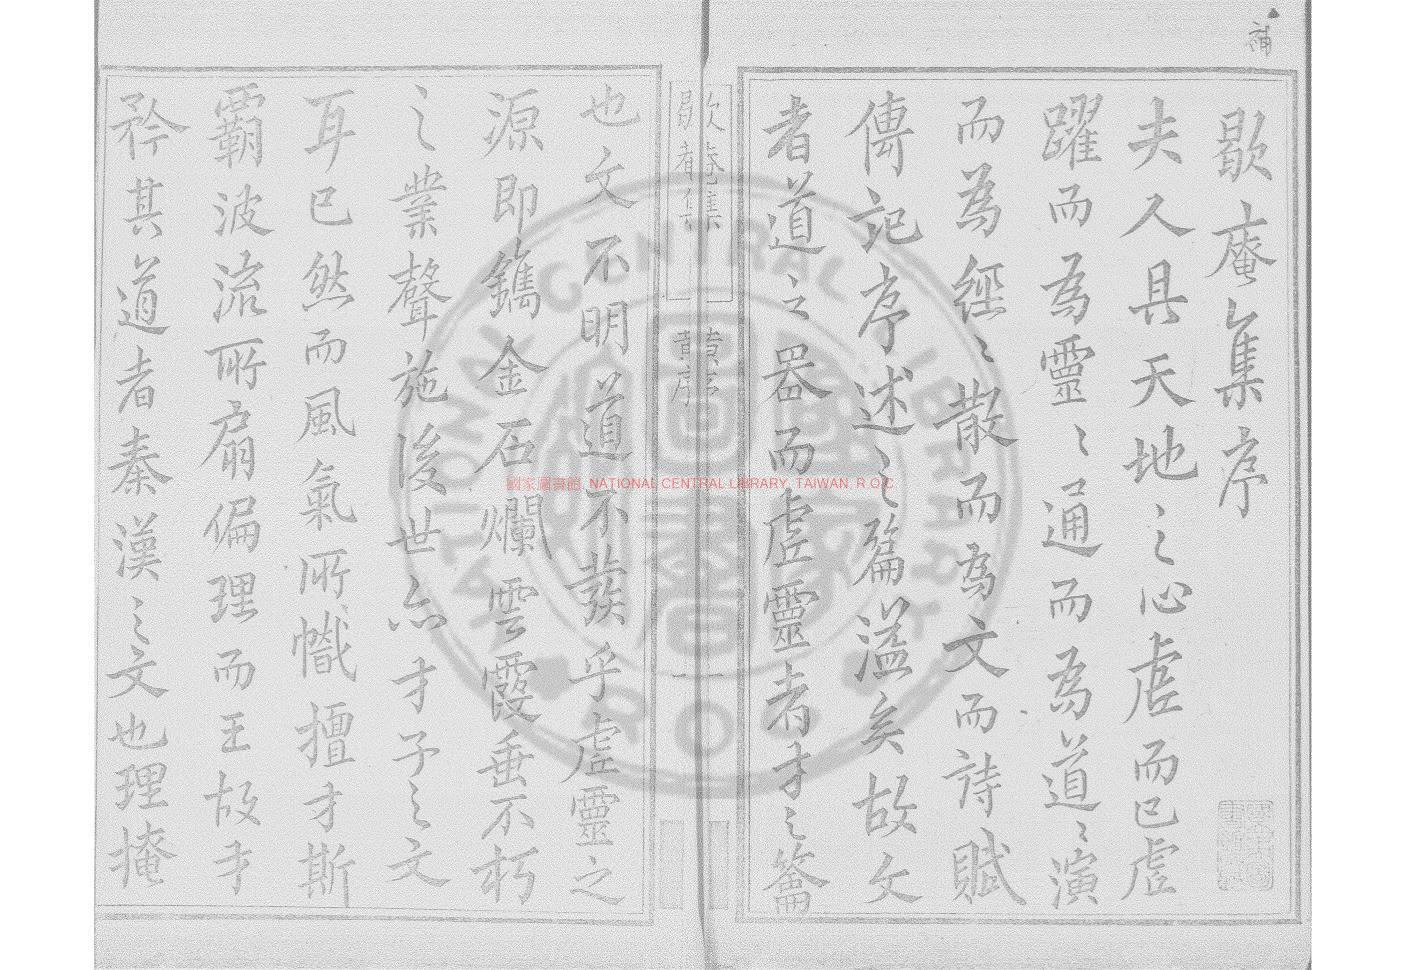 補
歇庵集序
夫人具天地之心虛而已虛
躍而為靈〻通而為道〻演
而為經〻散而為文而詩賦
傳記序述之篇溢矣故文
者道之器而虛靈者才之籥
歇菴集 黄序 一
也文不明道不發乎虛靈之
源即鐫金石爛雲霞垂不朽
之業聲施後世亦才子之文
耳已然而風氣所幟擅才斯
霸波流所扇偏理而王故才
矜其道者秦漢之文也理掩
國家圖書館, NATIONAL CENTRAL LIBRARY, TAIWAN, R.O.C
NATIONAL CENTRAL LIBRARY R O C